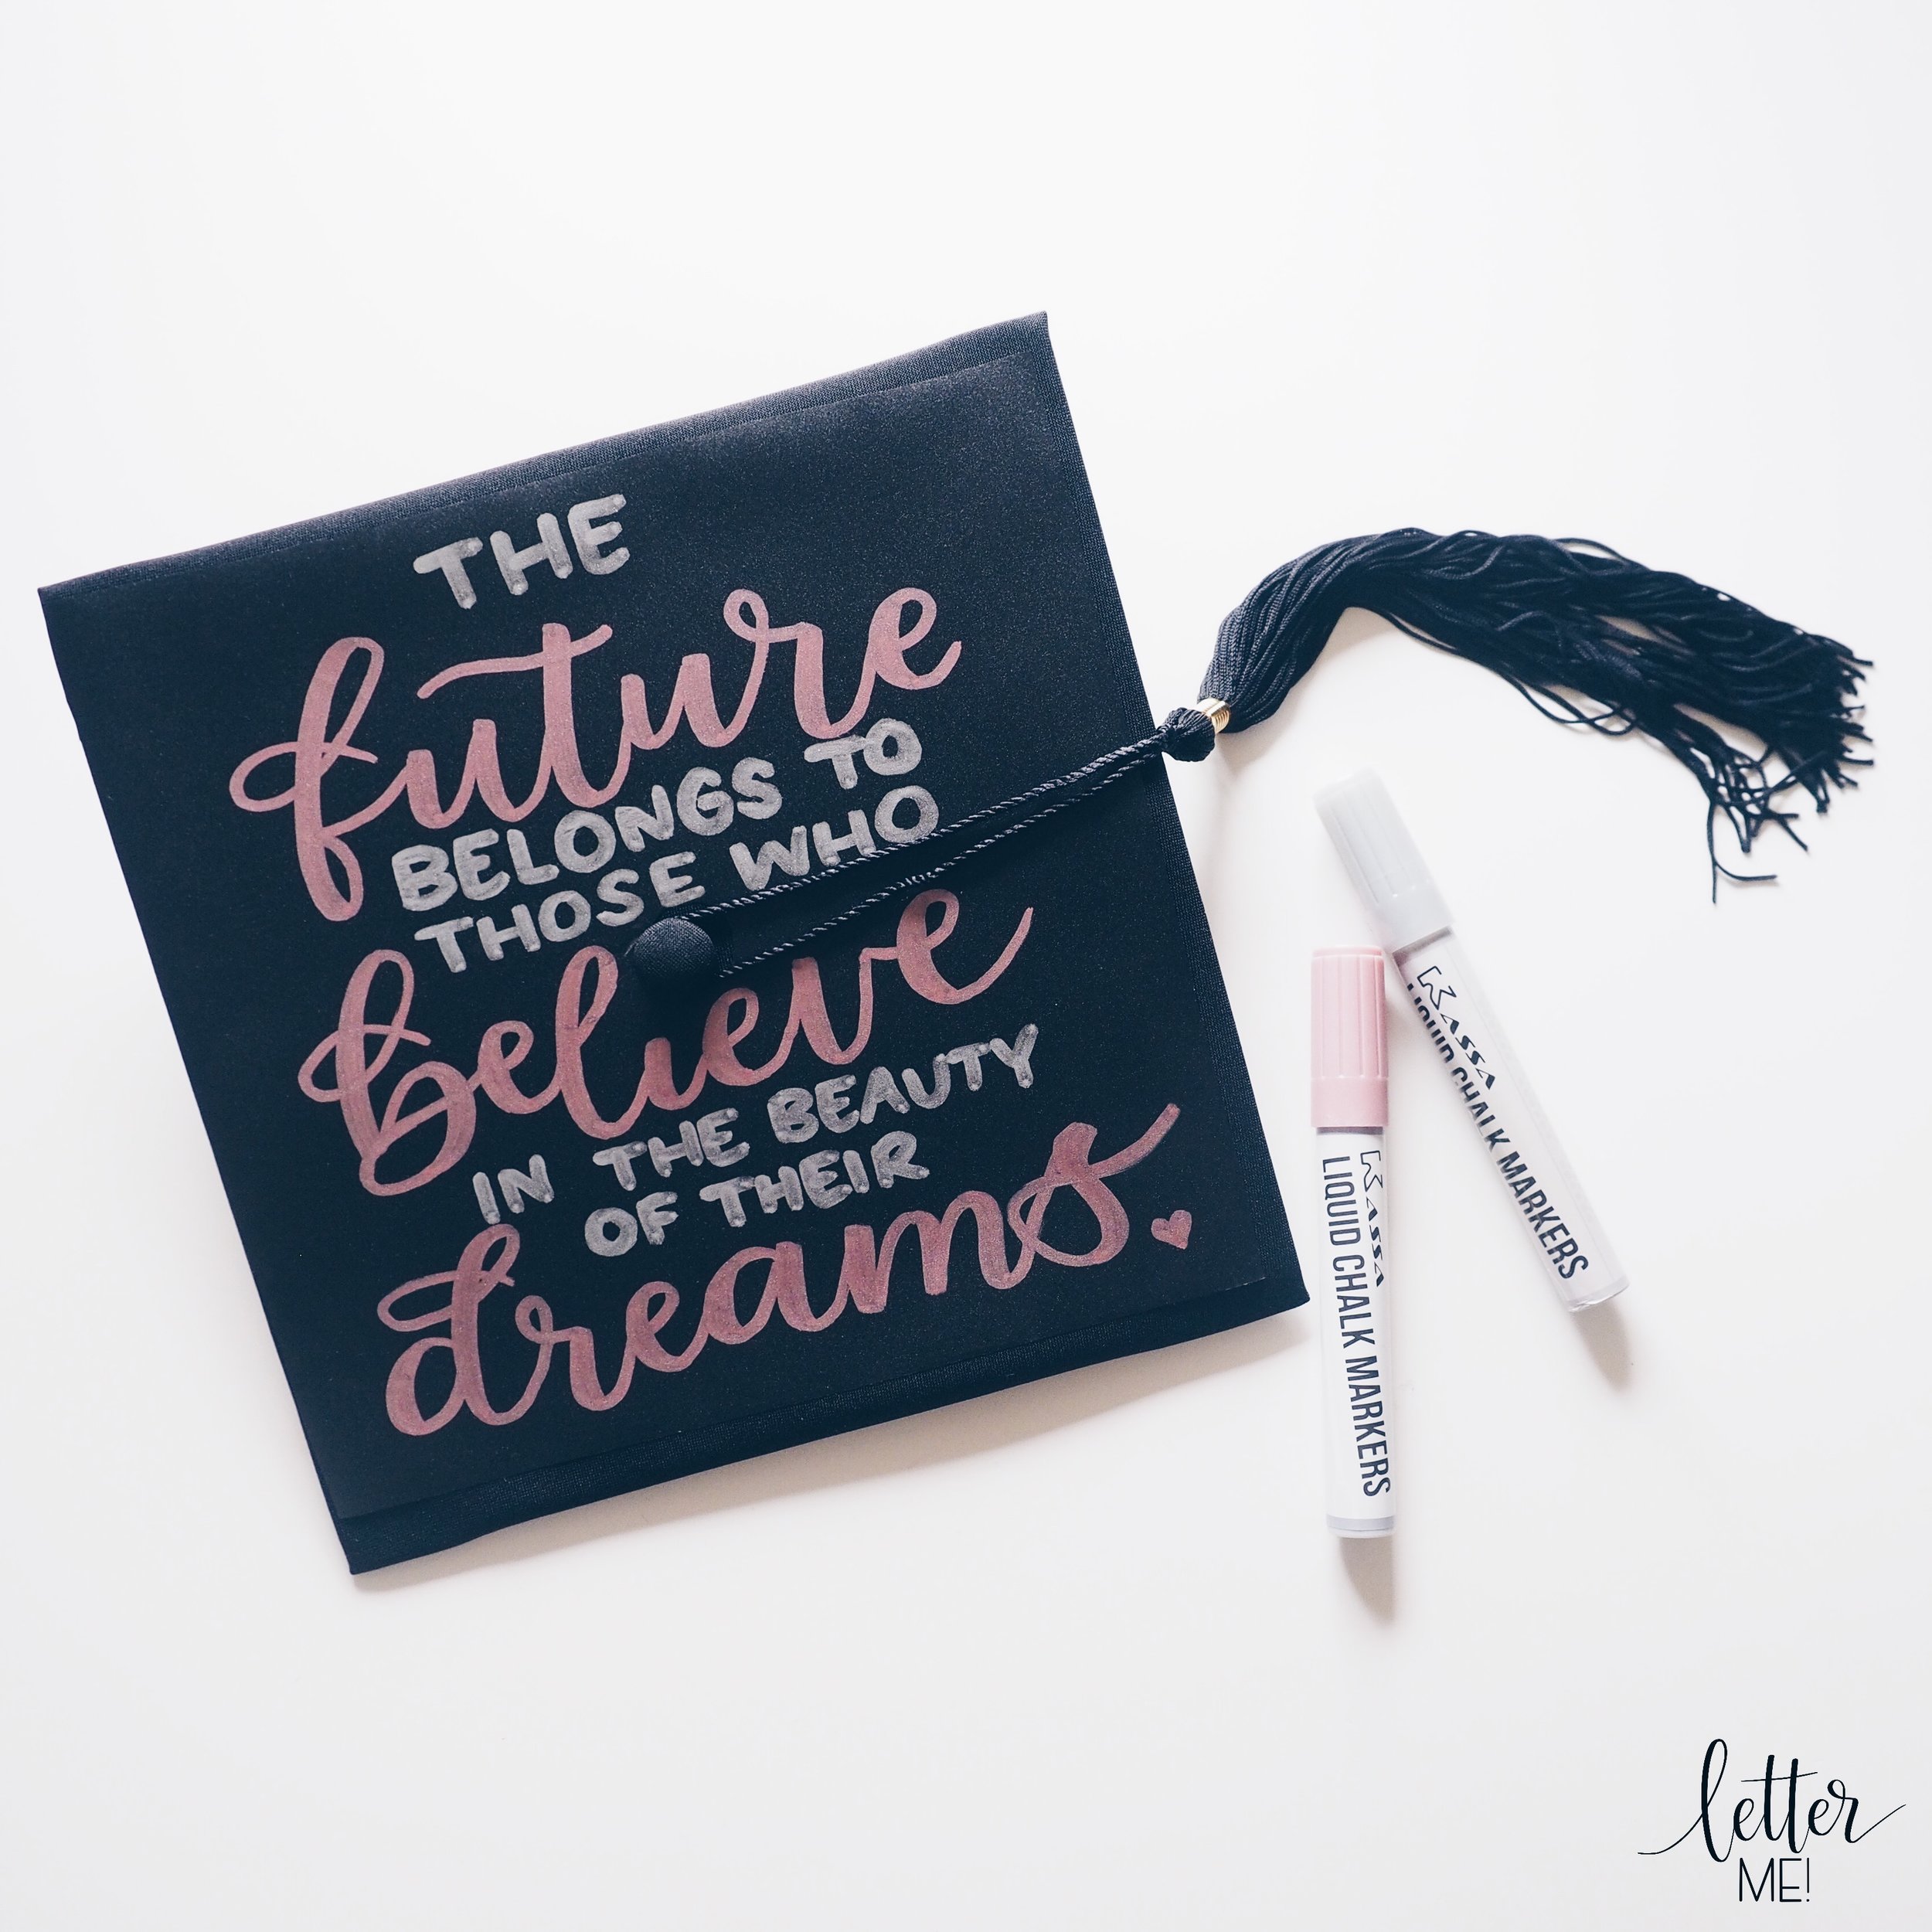 THE
future
BELONGS TO
THOSE WHO
believe
IN THE BEAUTY
OF THEIR
dreams.
KASSA
LIQUID CHALK MARKERS
KASSA
LIQUID CHALK MARKERS
letter
ME!